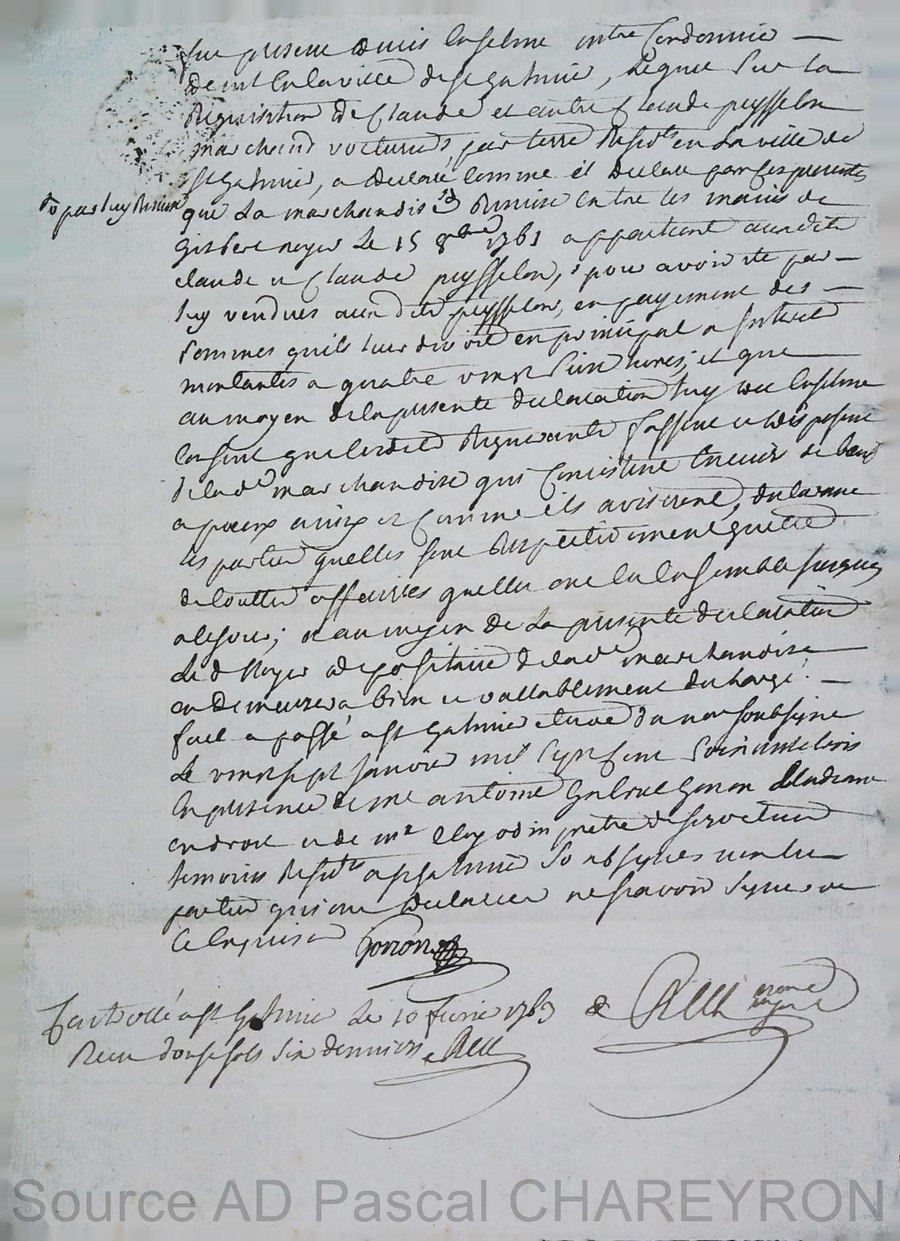 fut present denis enselme mtre Cordonnier
de cut en la ville de st galmier, lequel sur la
Requisition de Claude et autre Claude peysselon
marchand voituriers par terre Residts en la ville de
st galmier, a declaré comme il declare par ces presentes
par luy Remise
que La marchandise Remise entre les mains de
gisbert noyer Le 15 8bre 1761 appartient auxdits
claude et Claude peysselon, pour avoir été par
luy vendues auxdits peysselon, en payement des
sommes quils leur devoit en principal a interet
montantes a quatre vingt livres; et que
au moyen de la presente declaration luy dit enselme
consent que lesdits Requerants fassent et disposent
de lade marchandise qui Consistent en cuirs de
a prix et comme ils aviseront, declarant
les parties quelles sont Respectivement quittes
de touttes affaires quelles ont eu Ensemble jusques
a ce jour; et au moyen de La presente declaration
Le d Noyer depositaire de lade marchandise
en demeurera bien et vallablement dechargé.
fait et passé a st galmier etude du nore soubsigné
Le vingt sept janvier mil sept cent soixante trois
En presence de me antoine gabriel gonon etudiant
en droit et de mr eloy odin pretre et
temoins Residts a st galmier soubsignés non les
parties qui ont declaré ne sçavoir signer de
ce Enquis
gonon
Controllé a st galmier Le 10 fevrier 1763
Receu douze sols six denniers